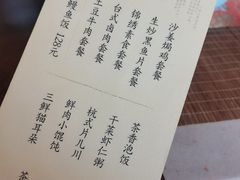 沙姜焗鸡套餐
生炒黑鱼片套餐
锦绣素食套餐
台式卤肉套餐
土豆牛肉套餐
鳗鱼饭 128元
茶香泡饭
干菜虾仁粥
杭式片儿川
鲜肉小馄饨
三鲜猫耳朵
茶